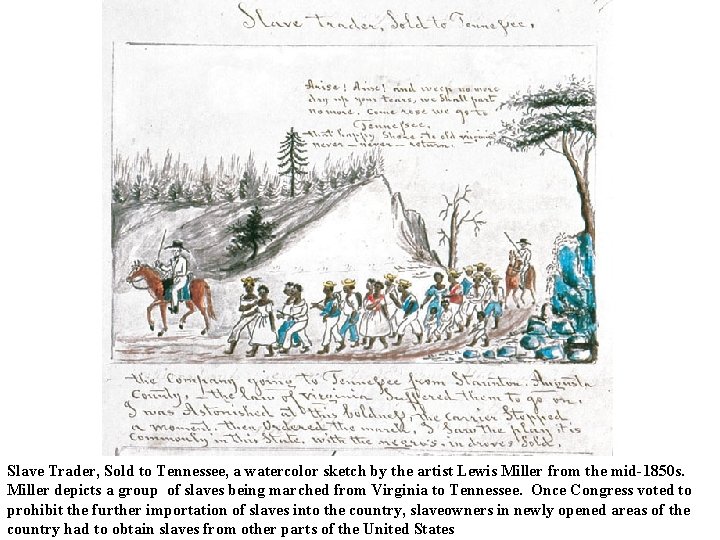 Slave trader, Sold to Tennessee.
Arise! Arise! and weep no more
dry up your tears, we Shall part
no more. Come rose we go to
Tennessee,
that happy Shore. to old virginia
never - never - return.
the Company going to Tennessee from Staunton. Augusta
County, - the law of virginia Suffered them to go on.
I was Astonished at this boldness, the carrier Stopped
a moment. then Ordered the march, I Saw the play it is
Commonly in this State. with the negro's, in droves Sold.
Slave Trader, Sold to Tennessee, a watercolor sketch by the artist Lewis Miller from the mid-1850s.
Miller depicts a group of slaves being marched from Virginia to Tennessee. Once Congress voted to
prohibit the further importation of slaves into the country, slaveowners in newly opened areas of the
country had to obtain slaves from other parts of the United States